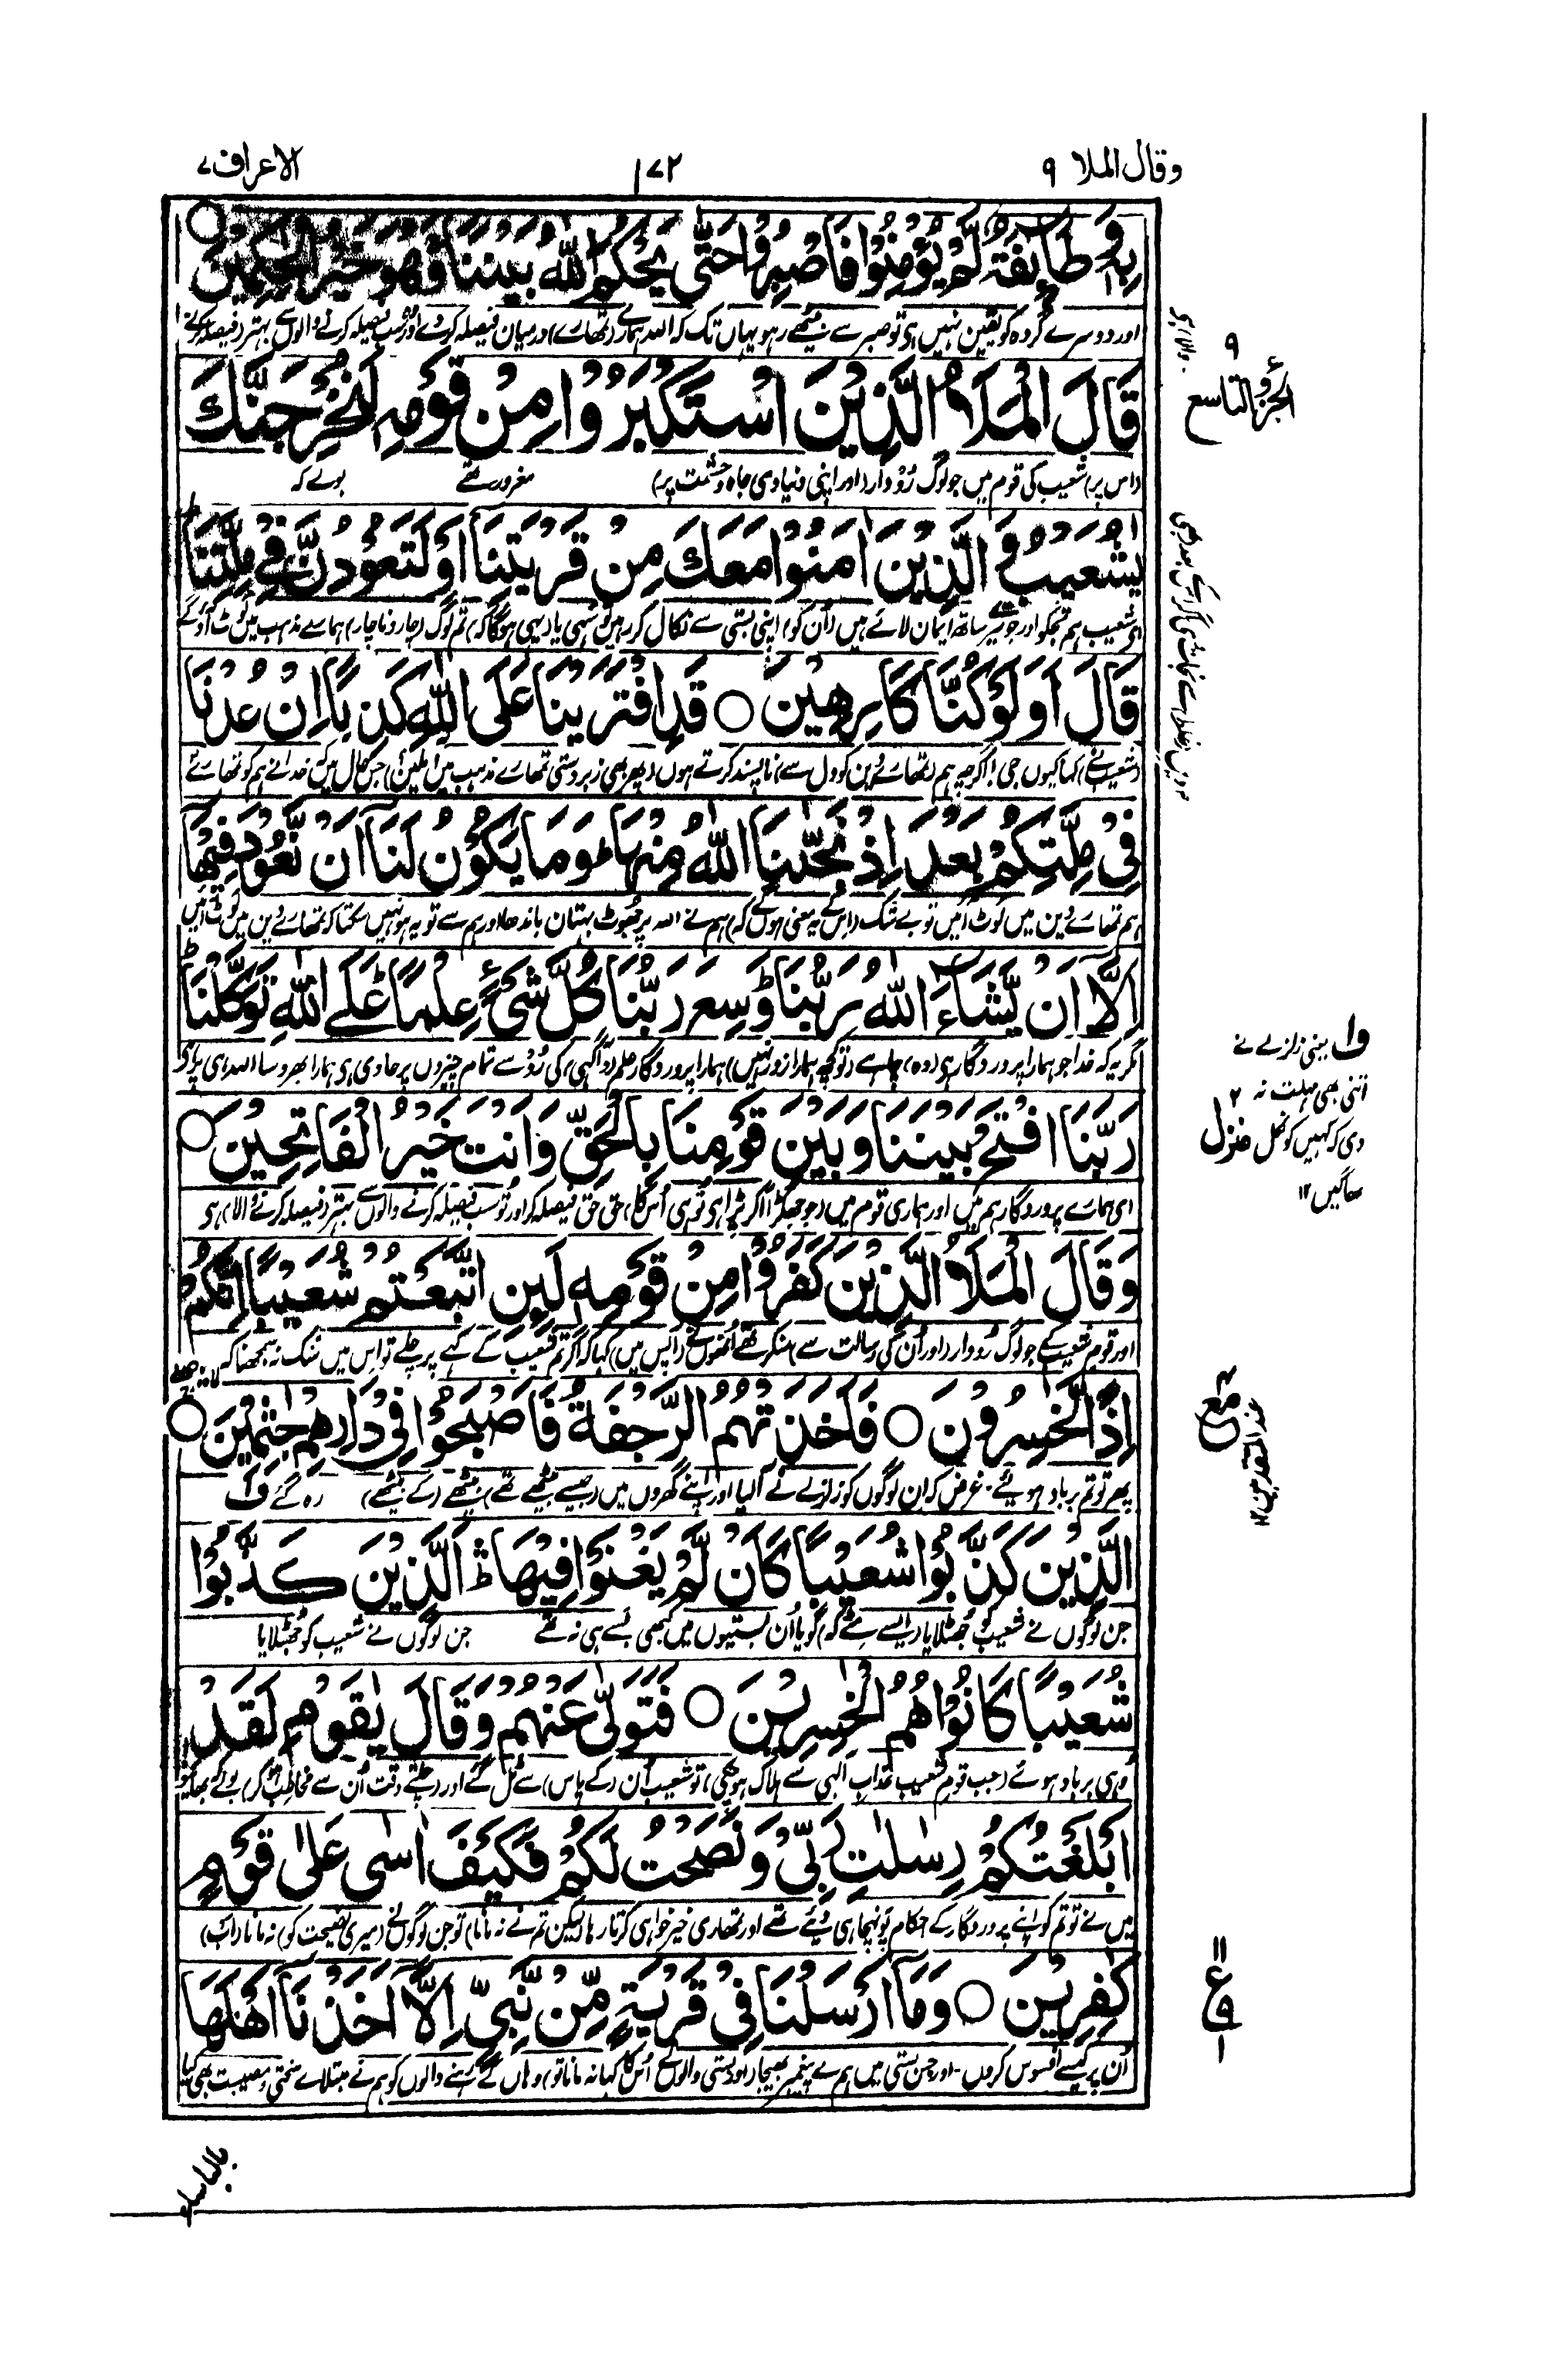 وقال الملا ٩
١٧٢
الاعراف ٧
بِهٖ وَطَآئِفَةٌ لَّمْ يُؤْمِنُوْا فَاصْبِرُوْا حَتّٰى يَحْكُمَ اللّٰهُ بَيْنَنَا وَهُوَ خَيْرُ الْحٰكِمِيْنَ ○
اور دوسرے گروہ کو یقین نہیں ہی تو صبر سے بیٹھے رہو یہاں تک کہ اللہ ہمارے (تمھارے) درمیان فیصلہ کر دے اور وہ سب فیصلہ کرنے والوں سے بہتر (فیصلہ کرنے
والا) ہی
٩
الجزؤ التاسع
قَالَ الْمَلَاُ الَّذِيْنَ اسْتَكْبَرُوْا مِنْ قَوْمِهٖ لَنُخْرِجَنَّكَ
(اس پر) شعیب کی قوم میں جو لوگ رُو دار (اور اپنی دنیاوی جاہ و حشمت پر) مغرور تھے بولے کہ
يٰشُعَيْبُ وَالَّذِيْنَ اٰمَنُوْا مَعَكَ مِنْ قَرْيَتِنَآ اَوْ لَتَعُوْدُنَّ فِيْ مِلَّتِنَا ط
ای شعیب ہم تجھکو اور جو تیرے ساتھ ایمان لائے ہیں (اُن کو) اپنی بستی سے نکال کر رہیں گے یا یہی ہوگا کہ تم لوگ (چار و ناچار) ہمارے مذہب میں لوٹ آؤ گے
قَالَ اَوَلَوْ كُنَّا كَارِهِيْنَ ○ قَدِ افْتَرَيْنَا عَلَى اللّٰهِ كَذِبًا اِنْ عُدْنَا
(شعیب نے) کہا کیوں جی! اگرچہ ہم (تمھارے دین کو دل سے) ناپسند کرتے ہوں (پھر بھی زبردستی تمھارے مذہب میں آملیں) جس حال میں کہ خدا نے ہم کو تمھارے
فِيْ مِلَّتِكُمْ بَعْدَ اِذْ نَجّٰنَا اللّٰهُ مِنْهَا ط وَمَا يَكُوْنُ لَنَآ اَنْ نَّعُوْدَ فِيْهَآ
ہم تمھارے دین میں لوٹ آئیں تو بے شک (اس کے یہ معنی ہوں گے کہ) ہم نے اللہ پر جھوٹ بہتان باندھا اور ہم سے تو یہ ہو نہیں سکتا کہ تمھارے دین میں لوٹ آئیں
اِلَّآ اَنْ يَّشَآءَ اللّٰهُ رَبُّنَا ط وَسِعَ رَبُّنَا كُلَّ شَيْءٍ عِلْمًا ط عَلَى اللّٰهِ تَوَكَّلْنَا ط
مگر یہ کہ خدا جو ہمارا پروردگار ہی (وہ) چاہے (تو کچھ ہمارا زور نہیں) ہمارا پروردگار علم (و آگہی) کی رُو سے تمام چیزوں پر حاوی ہی ہمارا بھروسا اللہ ہی پر ہی
رَبَّنَا افْتَحْ بَيْنَنَا وَبَيْنَ قَوْمِنَا بِالْحَقِّ وَاَنْتَ خَيْرُ الْفَاتِحِيْنَ ○
ای ہمارے پروردگار ہم میں اور ہماری قوم میں (جو جھگڑا آ کر پڑا ہی تو ہی اُس کا) حق حق فیصلہ کر اور تو سب فیصلہ کرنے والوں سے بہتر (فیصلہ کرنے والا) ہی
وَقَالَ الْمَلَاُ الَّذِيْنَ كَفَرُوْا مِنْ قَوْمِهٖ لَئِنِ اتَّبَعْتُمْ شُعَيْبًا اِنَّكُمْ
اور قوم شعیب کے جو لوگ رُو دار (اور اُن کی رسالت سے) منکر تھے اُنھوں نے (آپس میں) کہا کہ اگر تم شعیب کے کہے پر چلے تو اس میں شک نہ سمجھنا کہ
اِذًا لَّخٰسِرُوْنَ ○ فَاَخَذَتْهُمُ الرَّجْفَةُ فَاَصْبَحُوْا فِيْ دَارِهِمْ جٰثِمِيْنَ ○
پھر تو تم برباد ہوئے۔ غرض کہ ان لوگوں کو زلزلے نے آ لیا اور اپنے گھروں میں (جیسے بیٹھے تھے) بیٹھے (کے بیٹھے) رہ گئے ف١
الَّذِيْنَ كَذَّبُوْا شُعَيْبًا كَاَنْ لَّمْ يَغْنَوْا فِيْهَا ط اَلَّذِيْنَ كَذَّبُوْا
جن لوگوں نے شعیب کو جھٹلایا (ایسے مٹے کہ) گویا اُن بستیوں میں کبھی بسے ہی نہ تھے جن لوگوں نے شعیب کو جھٹلایا
شُعَيْبًا كَانُوْا هُمُ الْخٰسِرِيْنَ ○ فَتَوَلّٰى عَنْهُمْ وَقَالَ يٰقَوْمِ لَقَدْ
وہی برباد ہوئے (جب قوم شعیب عذاب الٰہی سے ہلاک ہو چکی) تو شعیب اُن (کے پاس) سے ٹل گئے اور (چلتے وقت اُن سے مخاطب ہو کر) بولے کہ بھائیو
اَبْلَغْتُكُمْ رِسٰلٰتِ رَبِّيْ وَنَصَحْتُ لَكُمْ فَكَيْفَ اٰسٰى عَلٰى قَوْمٍ
میں نے تو تم کو اپنے پروردگار کے احکام پونہچا ہی دیے تھے اور تمھاری خیر خواہی کرتا رہا (لیکن تم نے نہ مانا) تو جن لوگوں نے (میری نصیحت کو) نہ مانا (اب)
كٰفِرِيْنَ ○ وَمَآ اَرْسَلْنَا فِيْ قَرْيَةٍ مِّنْ نَّبِيٍّ اِلَّآ اَخَذْنَآ اَهْلَهَا
اُن پر کیسے افسوس کروں۔ اور جس بستی میں ہم نے پیغمبر بھیجا (اور بستی والوں نے اُس کا کہا نہ مانا تو) وہاں کے رہنے والوں کو ہم نے مبتلاے سختی و مصیبت بھی کیا
ف١ یعنی زلزلے نے
اتنی بھی مہلت نہ
دی کہ کہیں کو نکل
بھاگیں ١٢
منزل ٢
مع
عند المتقدمین ١٢
ع
بالباساء